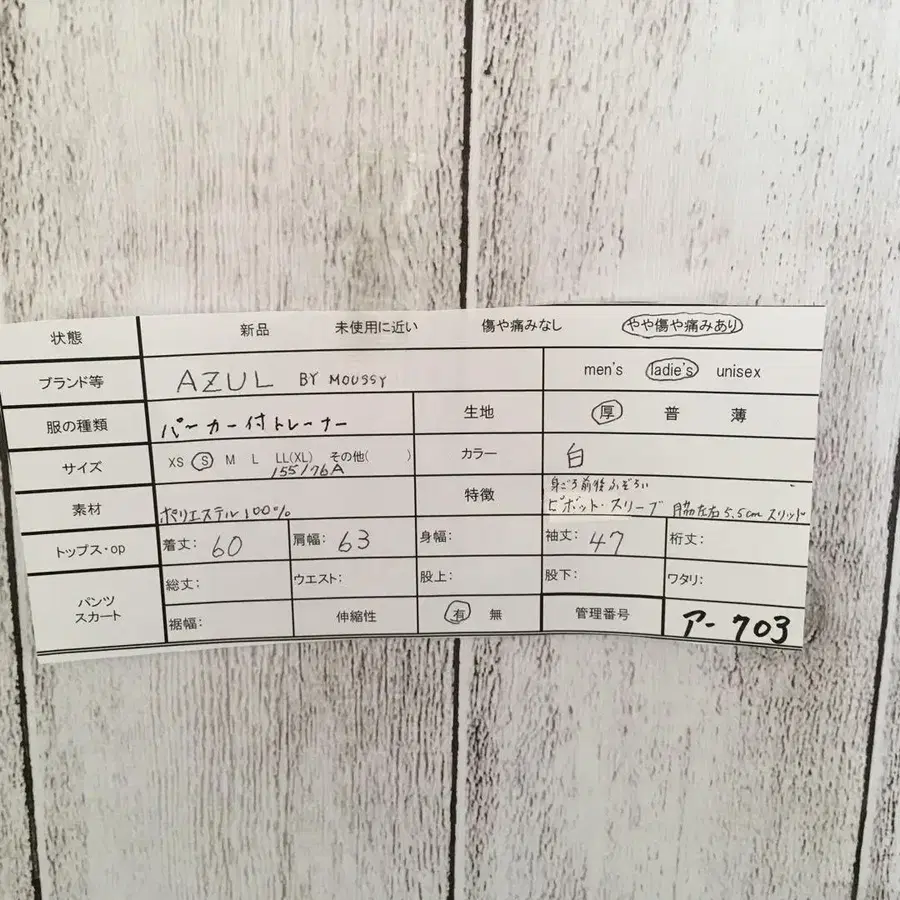 状態 新品 未使用に近い 傷や痛みなし やや傷や痛みあり
ブランド等 AZUL BY MOUSSY men's ladie's unisex
服の種類 パーカー付トレーナー 生地 厚 普 薄
サイズ XS S M L LL(XL) その他( ) カラー 白
155/76A
素材 ポリエステル100% 特徴 身ごろ前後ふぞろい
ピボット・スリーブ 脇左右5.5cmスリット
トップス・op 着丈: 60 肩幅: 63 身幅: 袖丈: 47 裄丈:
パンツ 総丈: ウエスト: 股上: 股下: ワタリ:
スカート 裾幅: 伸縮性 有 無 管理番号 ア-703